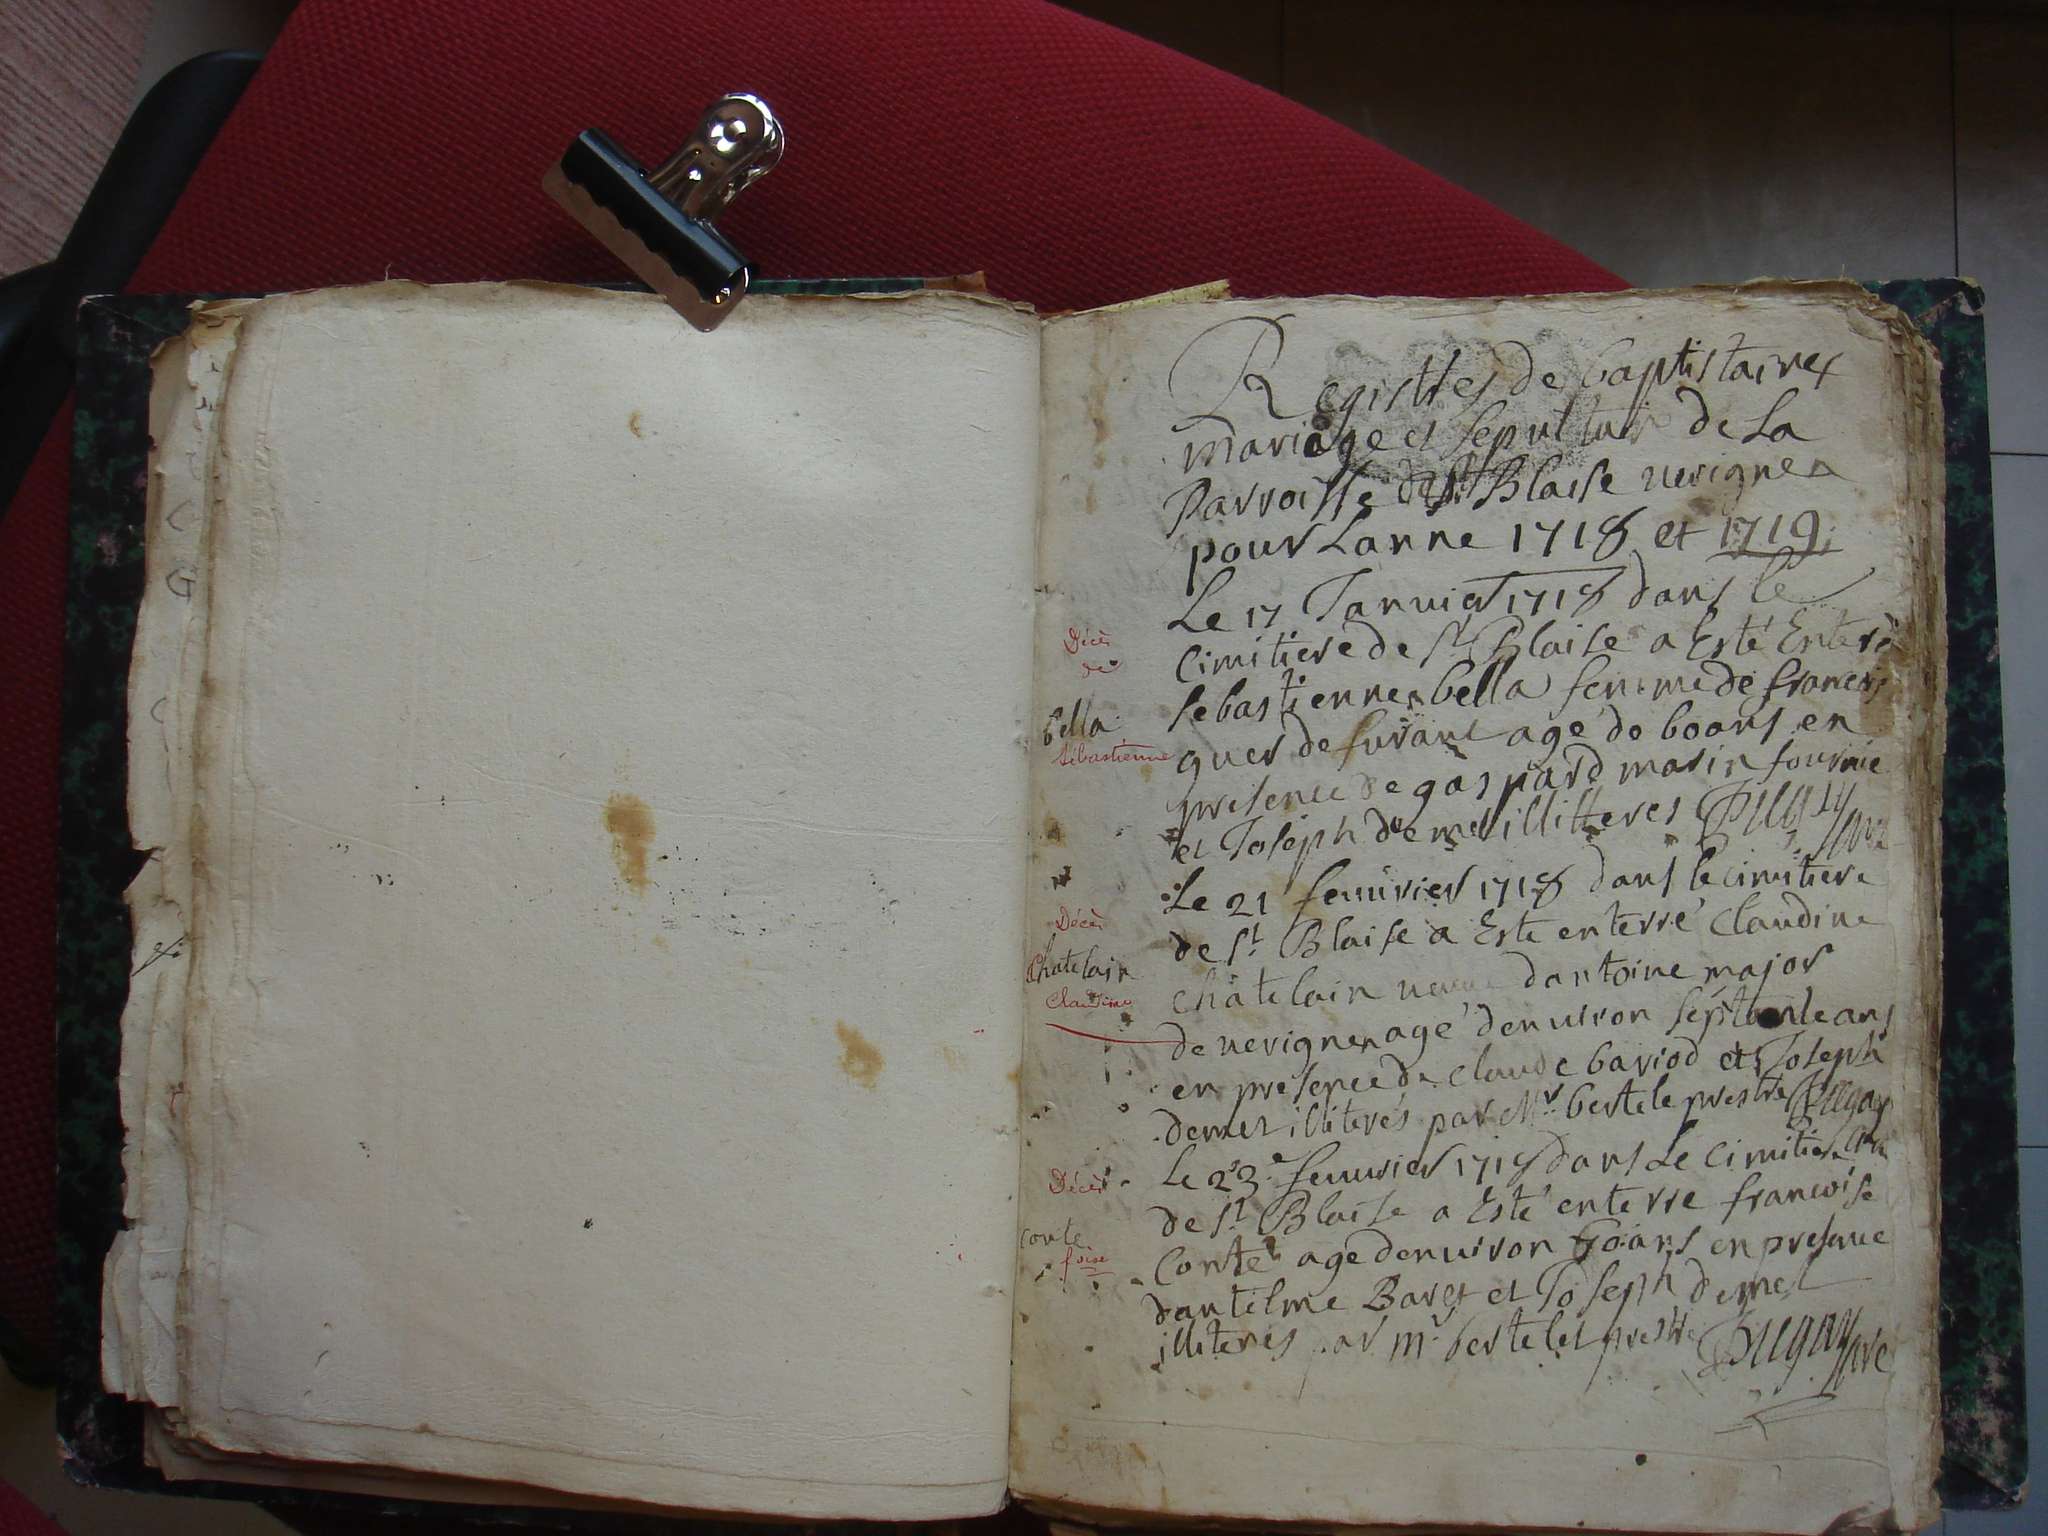 Registres de baptistaires
mariage et sepultur de La
Parroisse de St Blaise verignea
pour Lanne 1718 et 1719
Le 17 Januier 1718 dans le
Décès
de
Cimitiere de St Blaise a Esté Enteré
Bella
Sébastienne
sebastienne bella femme de francois
guer de age de 60 ans en
presence de gaspard marin fournie
et Joseph demet illitteres
Le 21 feuurier 1718 dans le cimitiere
Décès
de St Blaise a Este enterré Claudine
Chatelain
Claudine
Chatelain veuue dantoine major
de verignea agé denuiron septante ans
en presence de claude bariod et Joseph
demet illiterés par Mr bertele prestre
Décès
Le 23e feuurier 1718 dans Le Cimitiere
de St Blaise a Esté enterre francoise
Conte
foise
Conte agé denuiron 60 ans en presence
dantelme Baret et Joseph demet
illiteres par mr bertelet prestre